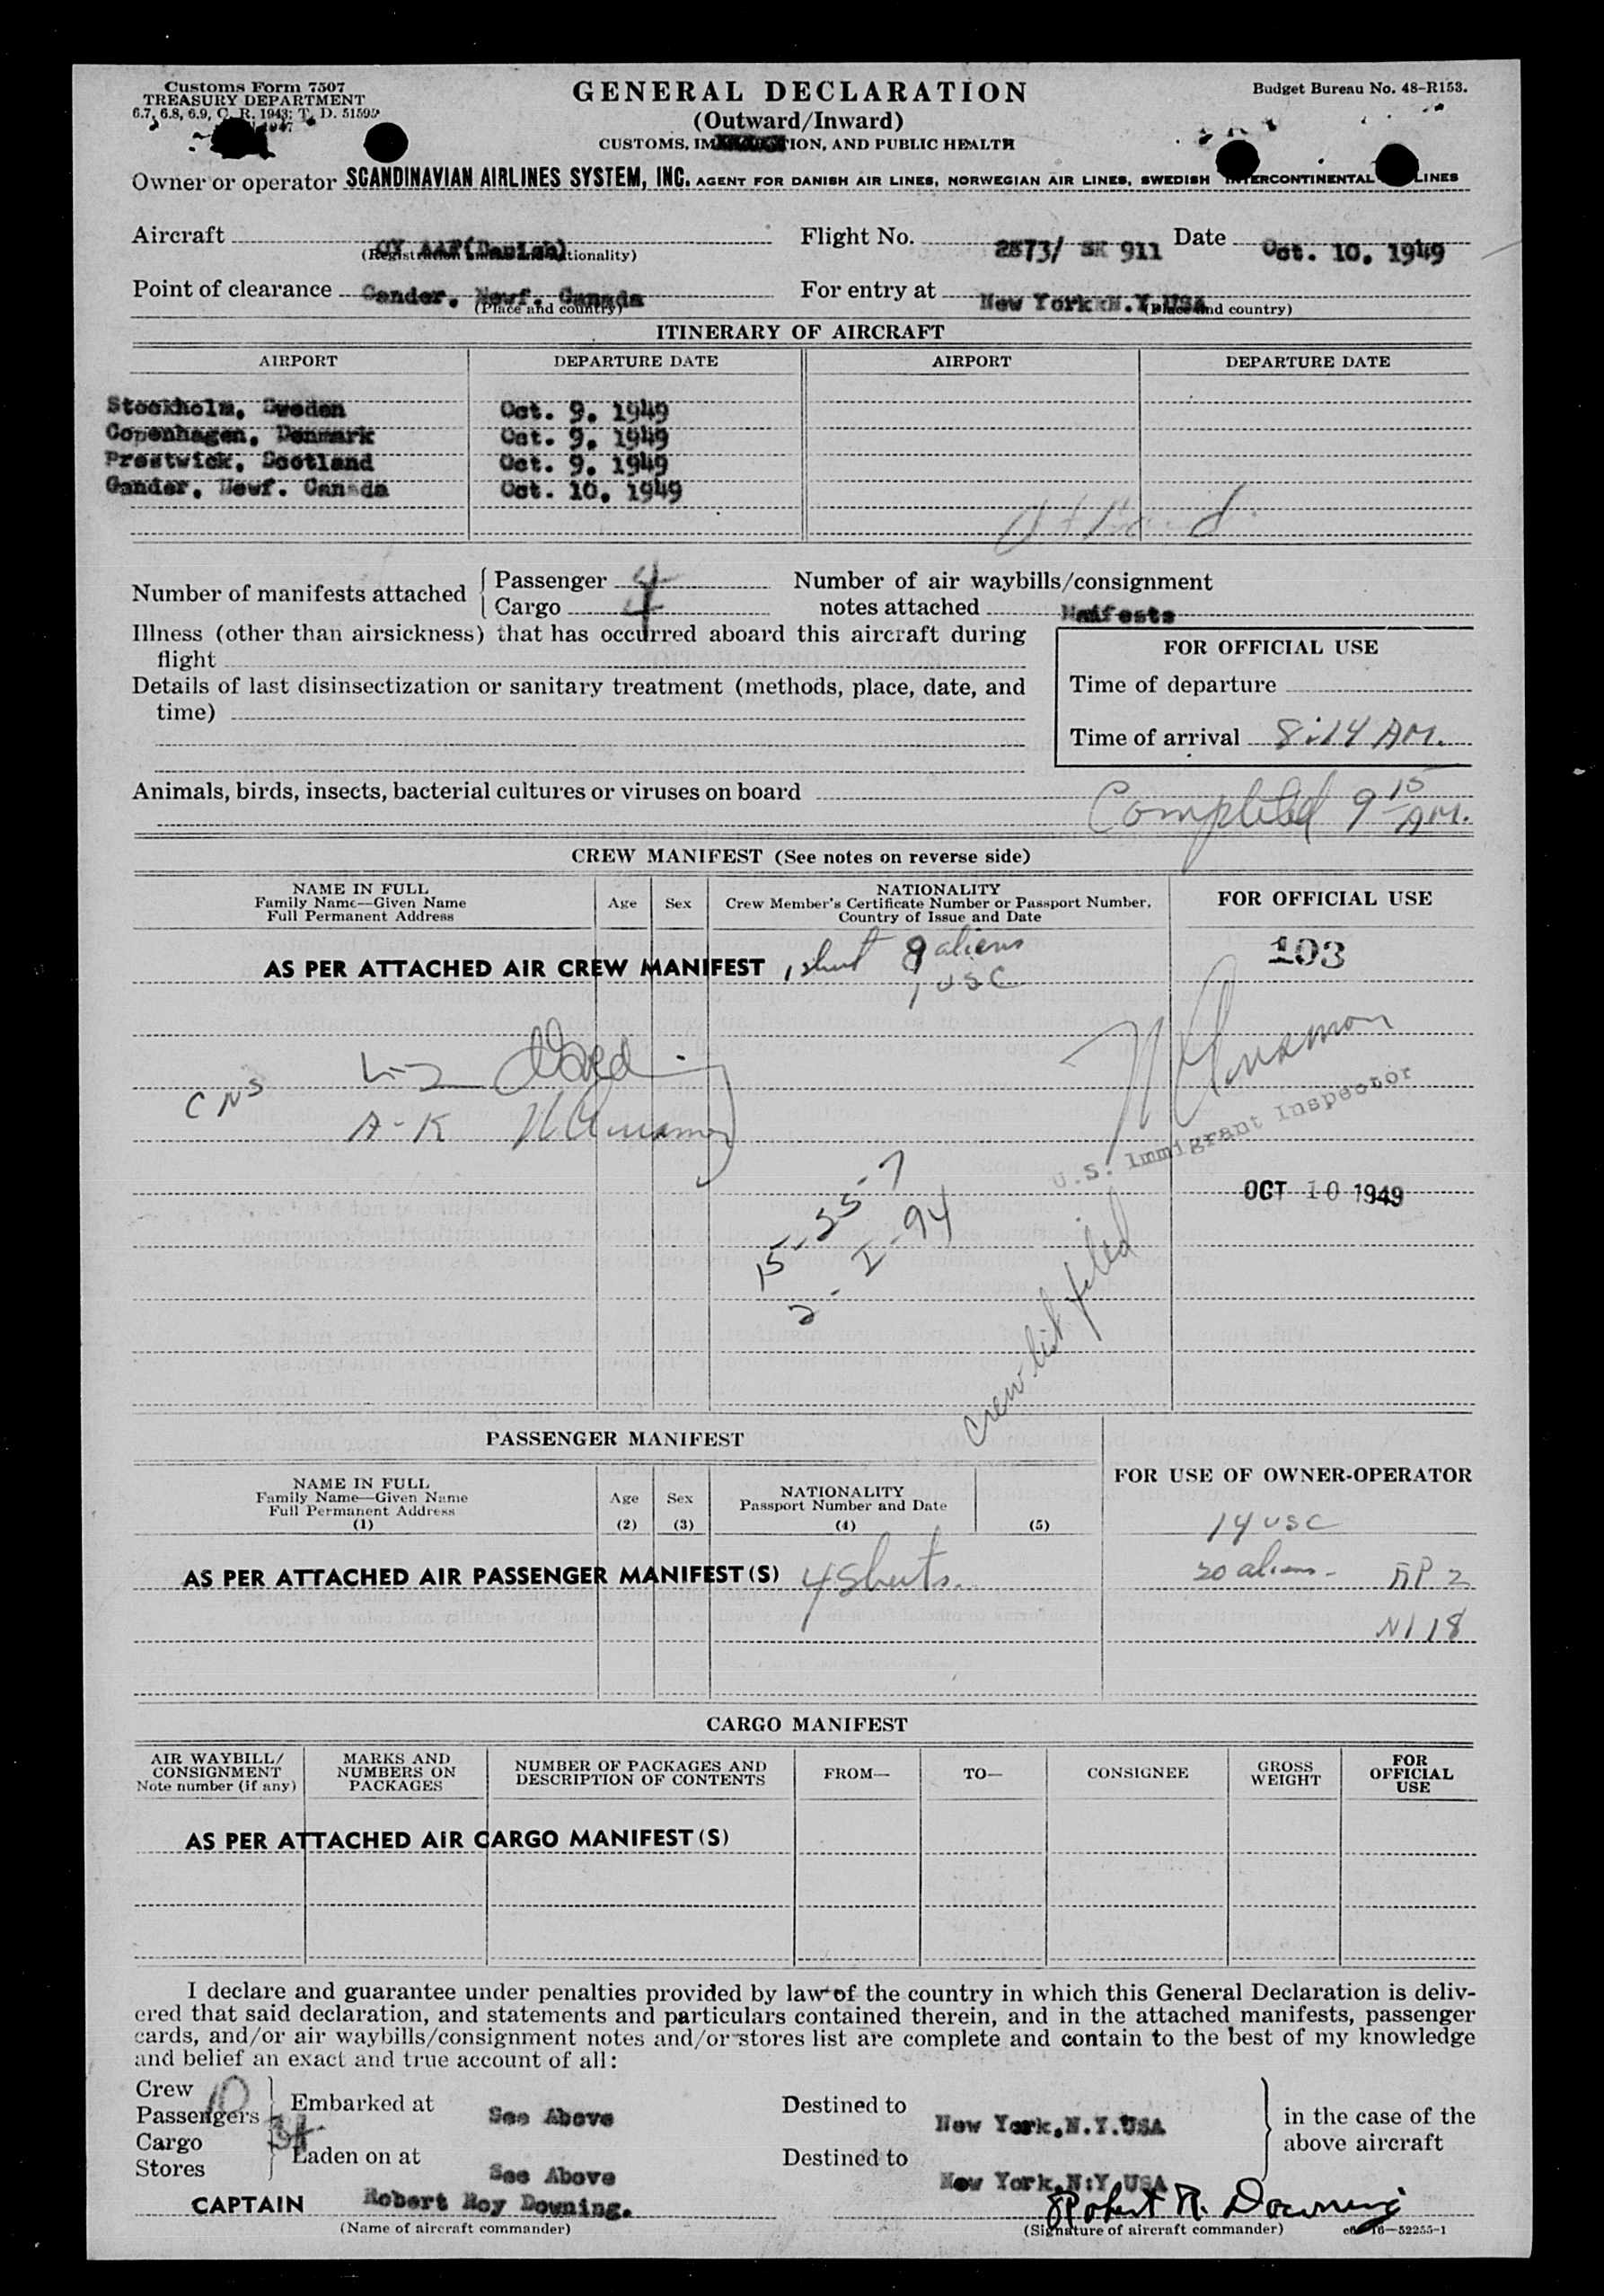 Customs Form 7507
TREASURY DEPARTMENT
6.7, 6.8, 6.9, C. R. 1943; T. D. 51592
1947
GENERAL DECLARATION
(Outward/Inward)
CUSTOMS, IMMIGRATION, AND PUBLIC HEALTH
Budget Bureau No. 48-R153.
Owner or operator SCANDINAVIAN AIRLINES SYSTEM, INC. AGENT FOR DANISH AIR LINES, NORWEGIAN AIR LINES, SWEDISH INTERCONTINENTAL LINES
Aircraft OY AAF(Danish) Flight No. 2873/ SK 911 Date Oct. 10, 1949
(Registration marks and nationality)
Point of clearance Gander, Newf. Canada For entry at New York N.Y.USA
(Place and country) (Place and country)
ITINERARY OF AIRCRAFT
AIRPORT DEPARTURE DATE AIRPORT DEPARTURE DATE
Stockholm, Sweden Oct. 9, 1949
Copenhagen, Denmark Oct. 9, 1949
Prestwick, Scotland Oct. 9, 1949
Gander, Newf. Canada Oct. 10, 1949
Number of manifests attached Passenger 4 Number of air waybills/consignment
Cargo 4 notes attached Maifests
Illness (other than airsickness) that has occurred aboard this aircraft during
flight
FOR OFFICIAL USE
Details of last disinsectization or sanitary treatment (methods, place, date, and
time)
Time of departure
Time of arrival 8:14 AM.
Animals, birds, insects, bacterial cultures or viruses on board
Completed 9 15 AM.
CREW MANIFEST (See notes on reverse side)
NAME IN FULL
Family Name—Given Name
Full Permanent Address
Age Sex
NATIONALITY
Crew Member's Certificate Number or Passport Number,
Country of Issue and Date
FOR OFFICIAL USE
AS PER ATTACHED AIR CREW MANIFEST 1 sheet 9 aliens
1 USC
103
CNS
A-K
U.S. Immigrant Inspector
OCT 10 1949
15-35-7
2-I-94
Crew list filed
PASSENGER MANIFEST
NAME IN FULL
Family Name—Given Name
Full Permanent Address
(1)
Age
(2)
Sex
(3)
NATIONALITY
Passport Number and Date
(4) (5)
FOR USE OF OWNER-OPERATOR
14 USC
AS PER ATTACHED AIR PASSENGER MANIFEST(S) 4 Sheets.
20 aliens - RP 2
NI 18
CARGO MANIFEST
AIR WAYBILL/
CONSIGNMENT
Note number (if any)
MARKS AND
NUMBERS ON
PACKAGES
NUMBER OF PACKAGES AND
DESCRIPTION OF CONTENTS
FROM—
TO—
CONSIGNEE
GROSS
WEIGHT
FOR
OFFICIAL
USE
AS PER ATTACHED AIR CARGO MANIFEST(S)
I declare and guarantee under penalties provided by law of the country in which this General Declaration is deliv-
ered that said declaration, and statements and particulars contained therein, and in the attached manifests, passenger
cards, and/or air waybills/consignment notes and/or stores list are complete and contain to the best of my knowledge
and belief an exact and true account of all:
Crew 10
Passengers 34
Cargo
Stores
Embarked at See Above Destined to New York,N.Y.USA
Laden on at See Above Destined to New York,N.Y.USA
in the case of the
above aircraft
CAPTAIN Robert Roy Downing. Robert R. Downing
(Name of aircraft commander) (Signature of aircraft commander)
16—52255-1